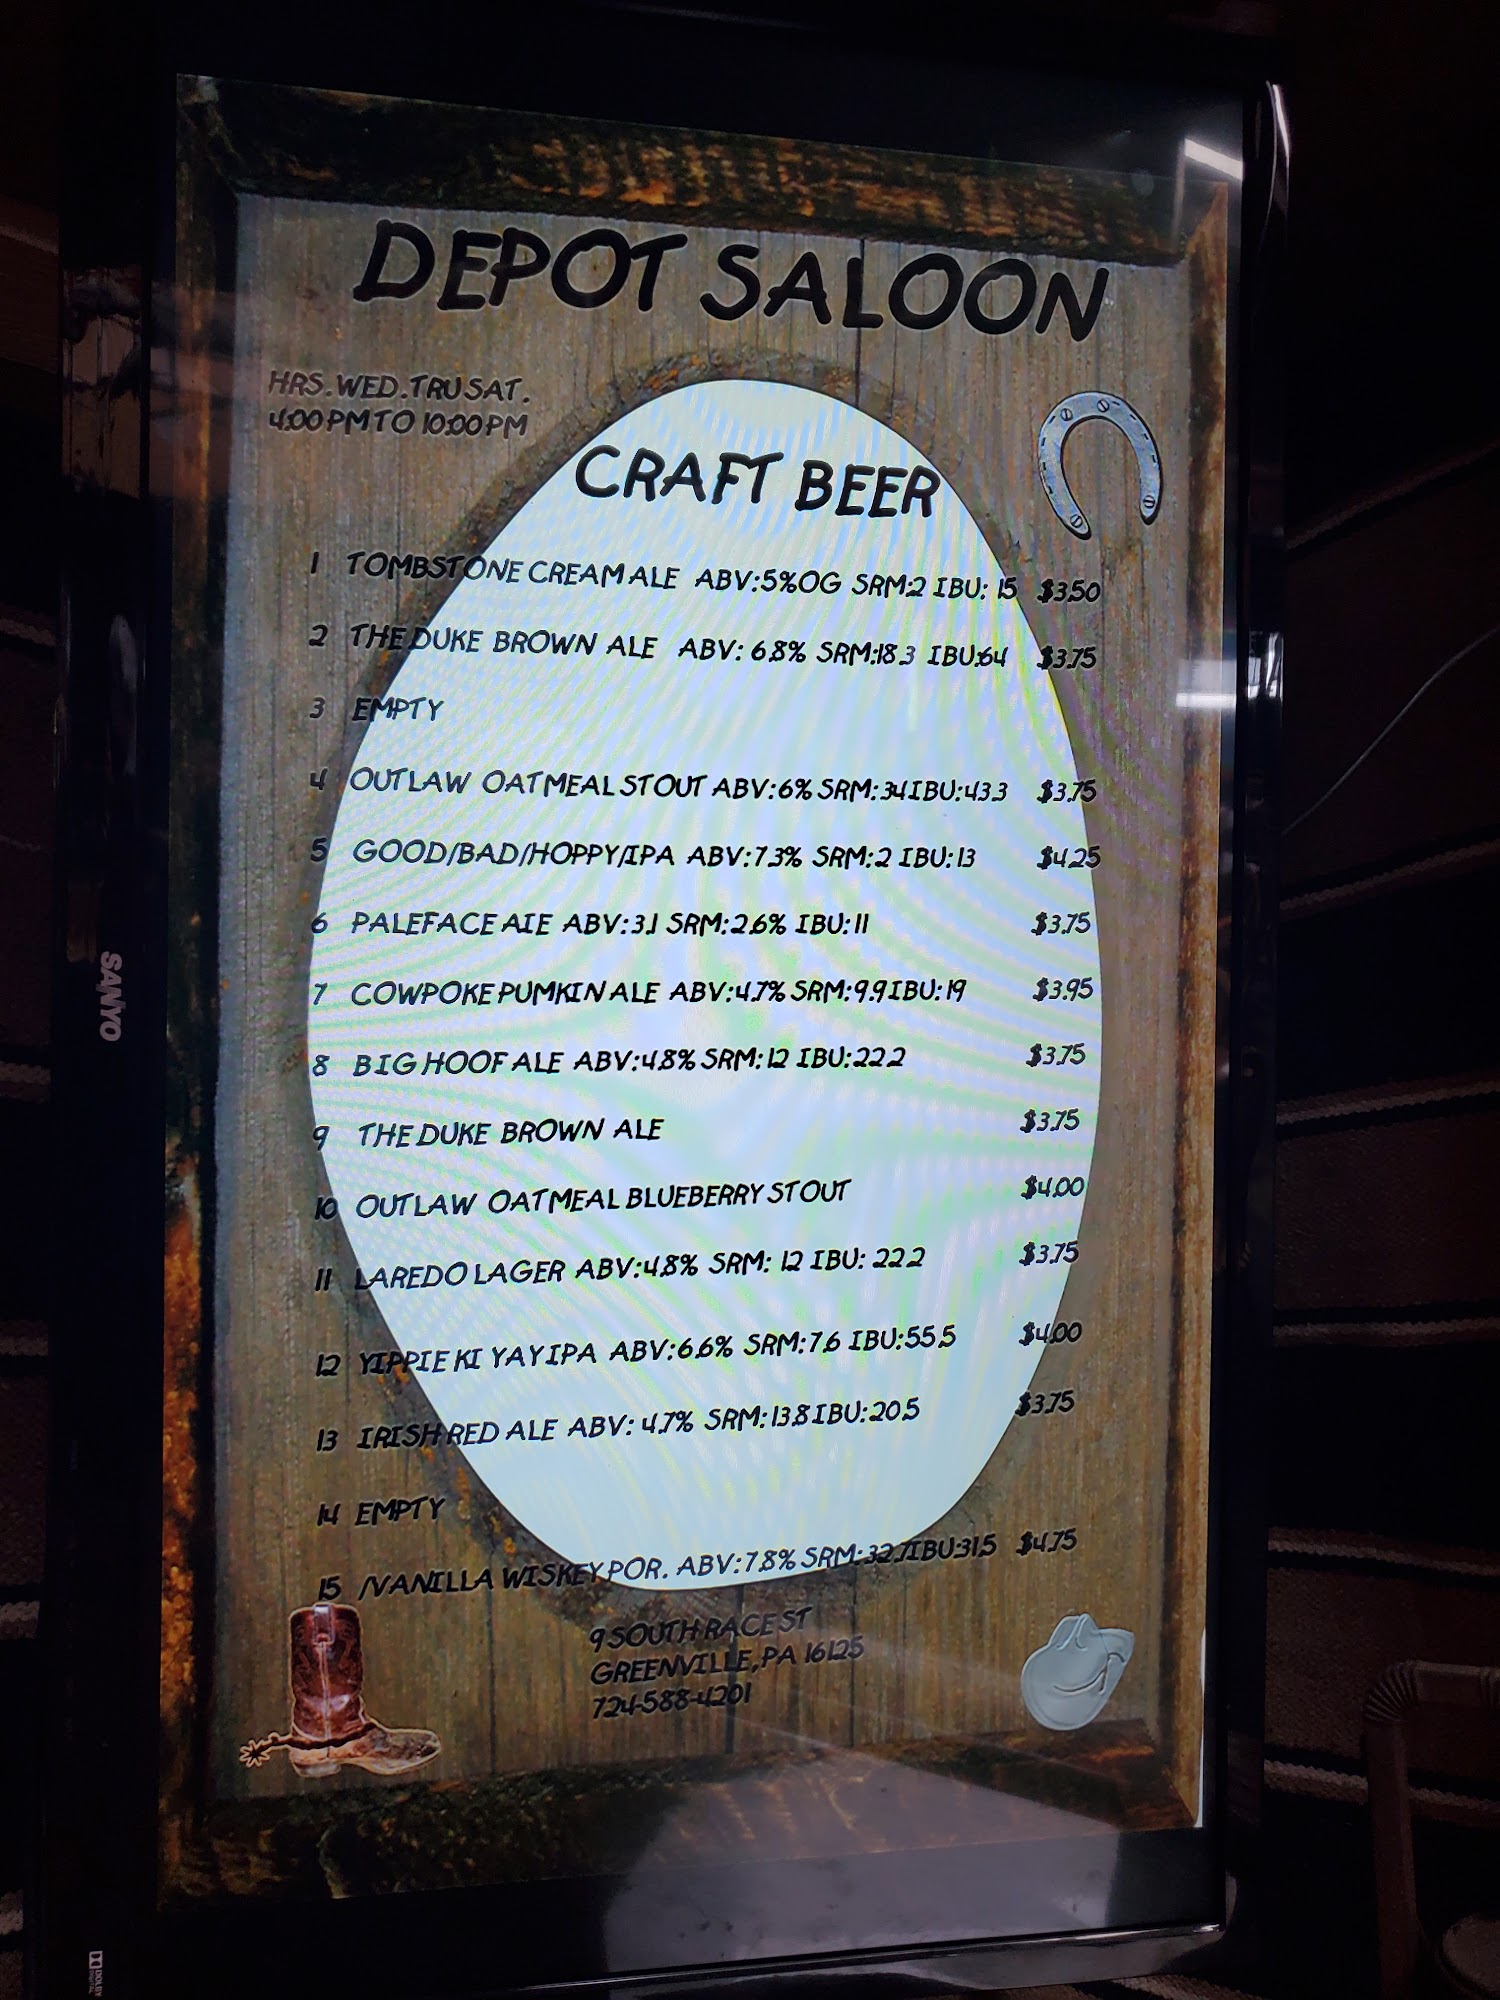 DEPOT SALOON
HRS. WED. TRU SAT.
4:00 PM TO 10:00 PM
CRAFT BEER
1 TOMBSTONE CREAM ALE ABV:5%OG SRM:2 IBU: 15 $3.50
2 THE DUKE BROWN ALE ABV: 6.8% SRM:18.3 IBU:64 $3.75
3 EMPTY
4 OUTLAW OATMEAL STOUT ABV:6% SRM:34 IBU:43.3 $3.75
5 GOOD/BAD/HOPPY/IPA ABV:7.3% SRM:2 IBU:13 $4.25
6 PALEFACE AIE ABV:3.1 SRM:2.6% IBU:11 $3.75
7 COWPOKE PUMKIN ALE ABV:4.7% SRM:9.9 IBU:19 $3.95
8 BIG HOOF ALE ABV:4.8% SRM:12 IBU:22.2 $3.75
9 THE DUKE BROWN ALE $3.75
10 OUTLAW OATMEAL BLUEBERRY STOUT $4.00
11 LAREDO LAGER ABV:4.8% SRM: 12 IBU: 22.2 $3.75
12 YIPPIE KI YAY IPA ABV:6.6% SRM:7.6 IBU:55.5 $4.00
13 IRISH RED ALE ABV: 4.7% SRM:13.8 IBU:20.5 $3.75
14 EMPTY
15 /VANILLA WISKEY POR. ABV:7.8% SRM:32.7 IBU:31.5 $4.75
9 SOUTH RACE ST
GREENVILLE, PA 16125
724-588-4201
SANYO
DOLBY
DIGITAL